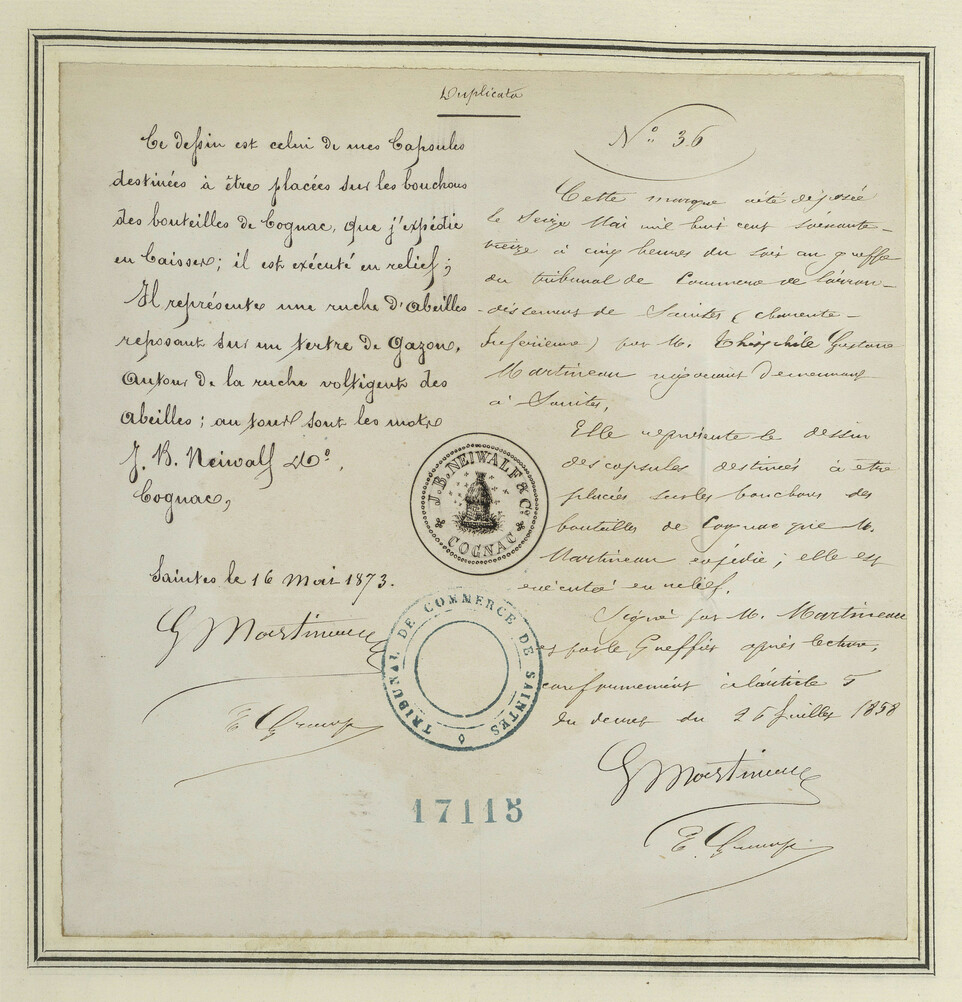 Duplicata
Ce dessin est celui de mes Capsules
destinées à être placées sur les bouchons
des bouteilles de Cognac, que j'expédie
en Caisses; il est exécuté en relief;
Il représente une ruche d'Abeilles
reposant sur un tertre de Gazon,
Autour de la ruche voltigent des
Abeilles; au tour sont les mots
J. B. Neiwalf & Co.,
Cognac,
Saintes le 16 Mai 1873.
G Martineau
N° 36
Cette marque a été déposée
le Seize Mai mil huit cent soixante-
treize à cinq heures du soir au greffe
du tribunal de Commerce de l'arron-
dissement de Saintes (charente-
Inférieure) par M. Théophile Gustave
Martineau négociant demeurant
à Saintes,
Elle représente le dessin
des capsules destinées à être
placées sur les bouchons des
bouteilles de Cognac que M.
Martineau expédie; elle est
exécutée en relief.
Signé par M. Martineau
et par le Greffier après lecture,
conformément à l'article 5
du decret du 26 Juillet 1858
G Martineau
J. B. NEIWALF & Co.
COGNAC
TRIBUNAL DE COMMERCE DE SAINTES
17115